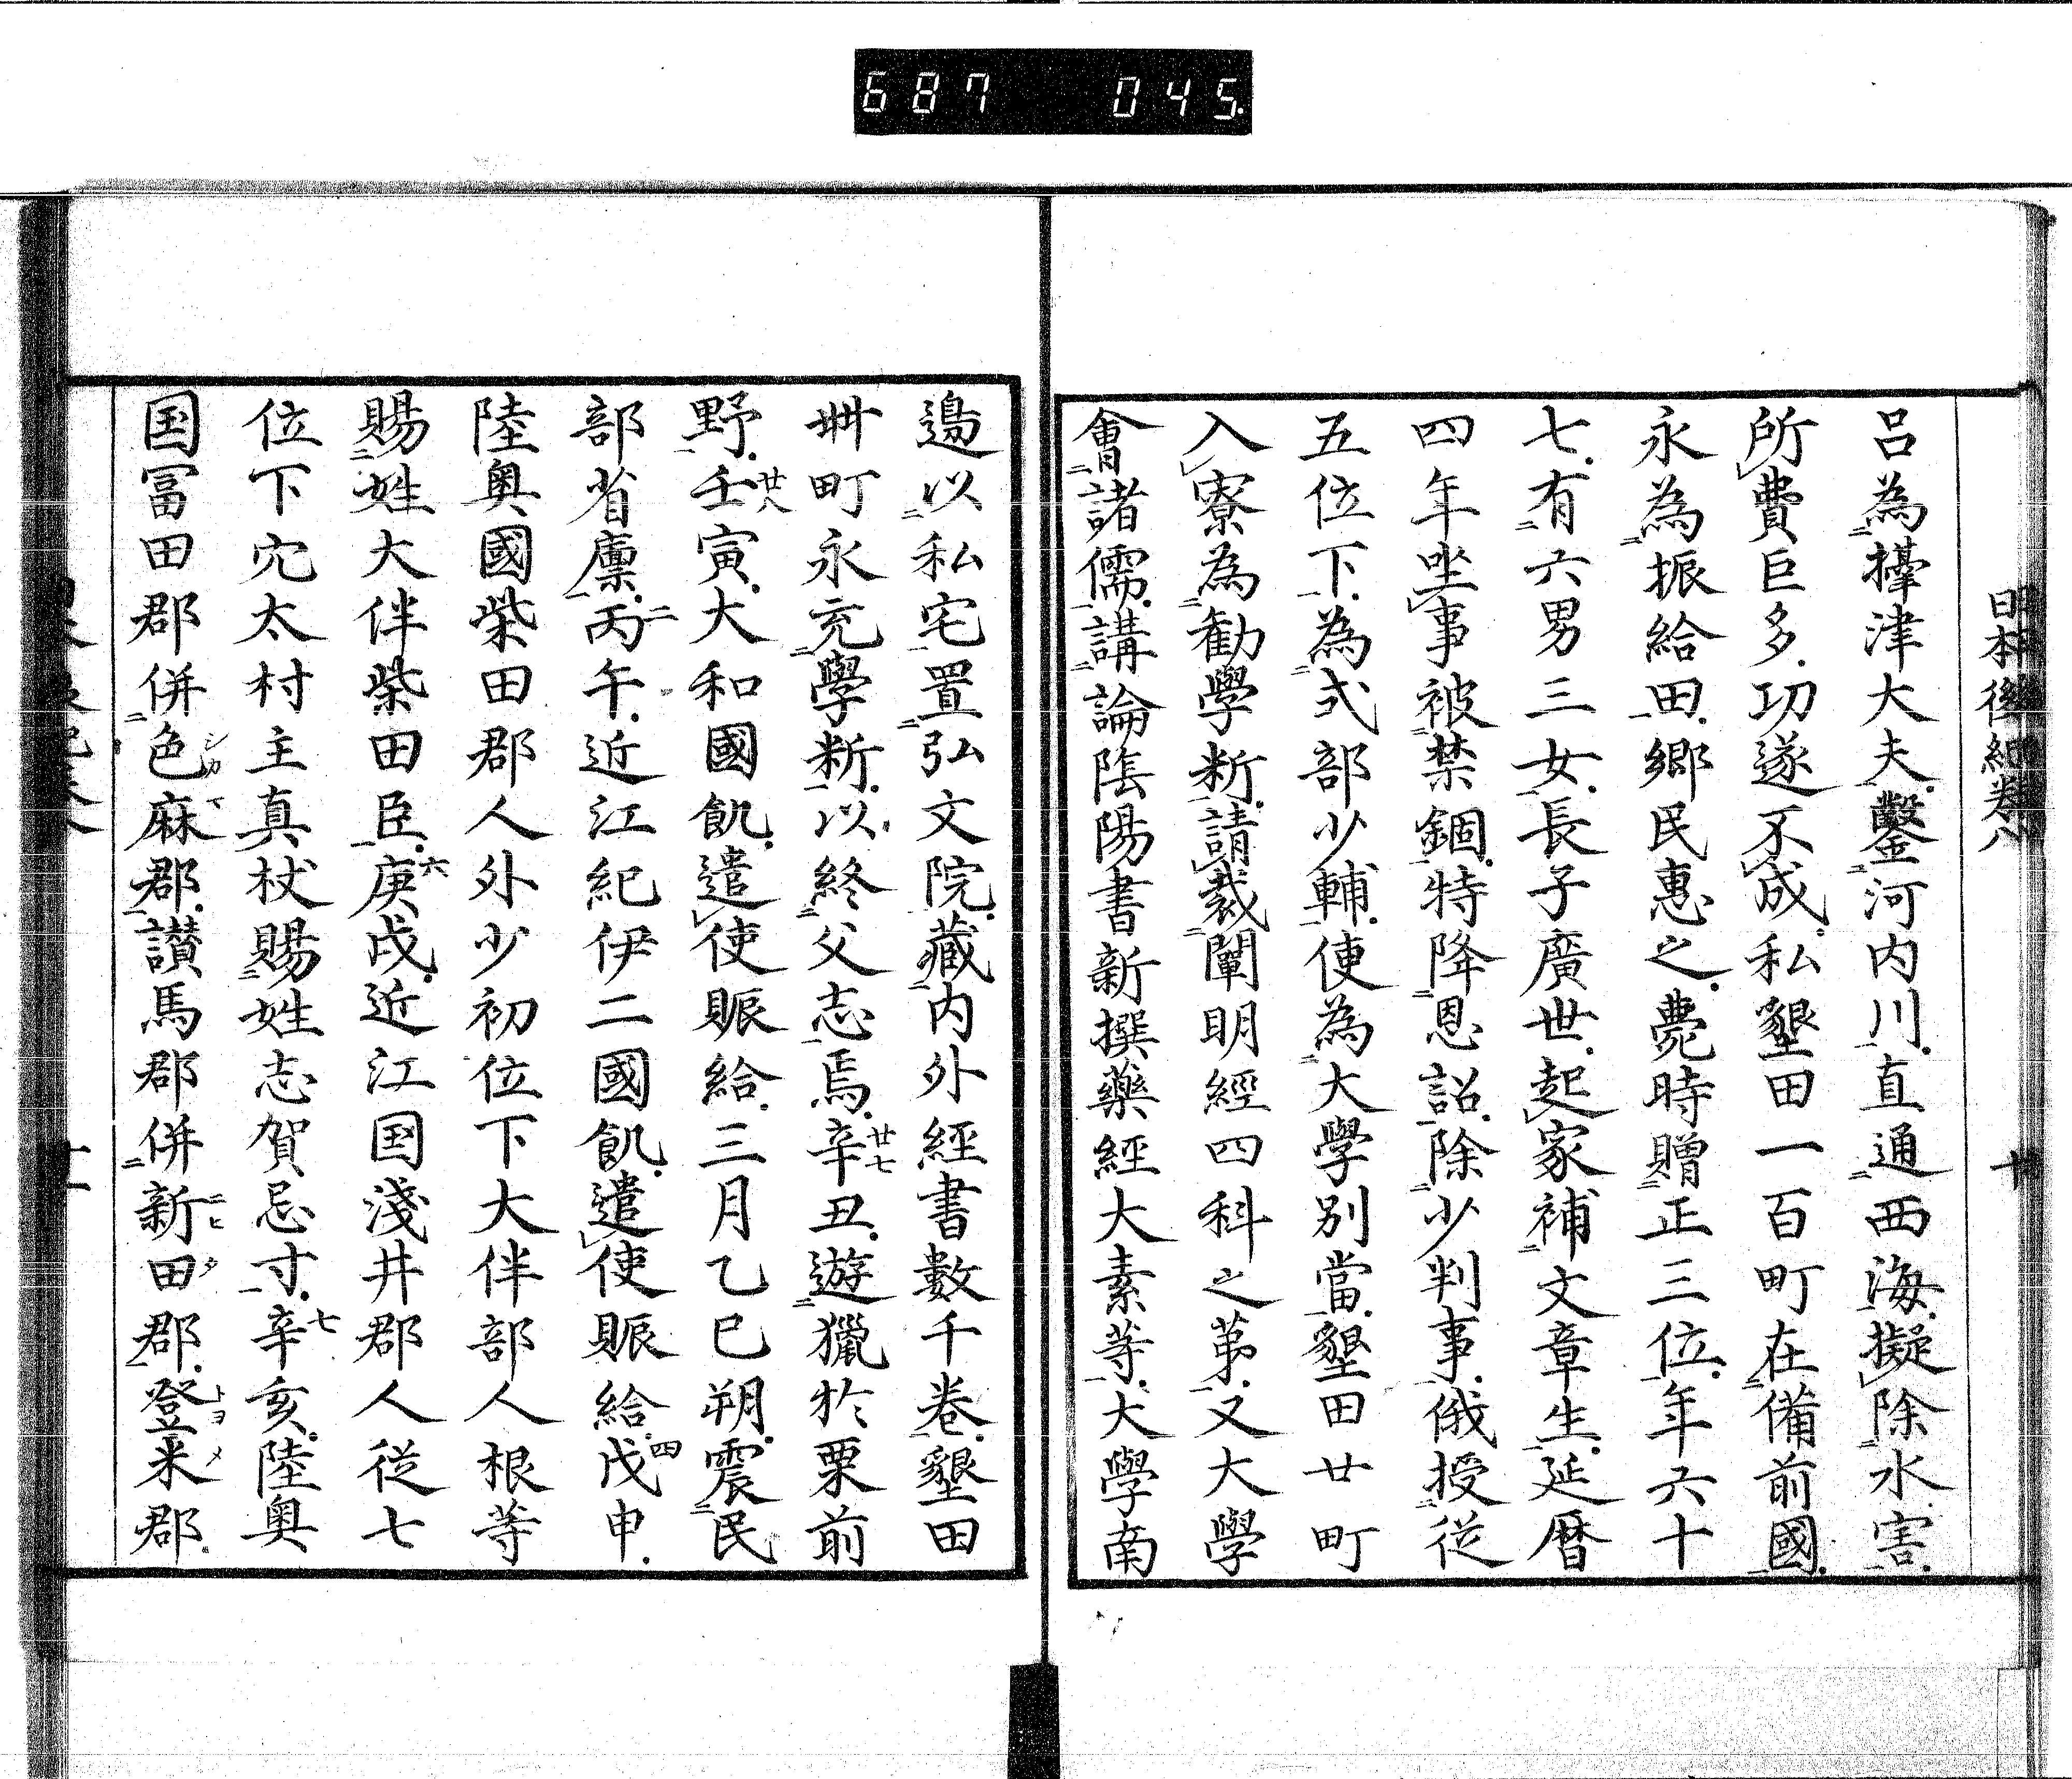 687 045
日本後紀卷八 十
呂為擡津大夫鑿河内川直通西海擬除水害
所費巨多功遂不成私墾田一百町在備前國
永為振給田郷民惠之薨時贈正三位年六十
七有六男三女長子廣世起家補文章生延暦
四年坐事被禁錮特降恩詔除少判事俄授従
五位下為式部少輔便為大學別當墾田廿町
入寮為勸學断請裁闡明經四科之第又大學
會諸儒講論陰陽書新撰藥經大素等大學南
邊以私宅置弘文院藏内外經書數千巻墾田
卌町永充學断以終父志焉辛丑廿七遊獵於栗前
野壬寅廿八大和國飢遣使賑給三月乙巳朔震民
部省廩丙午二近江紀伊二國飢遣使賑給戊申四
陸奥國柴田郡人外少初位下大伴部人根等
賜姓大伴柴田臣庚戌六近江国淺井郡人従七
位下穴太村主真杖賜姓志賀忌寸辛亥七陸奥
国冨田郡併色麻郡讃馬郡併新田郡登米郡
シカマ
ニヒタ
トヨメ